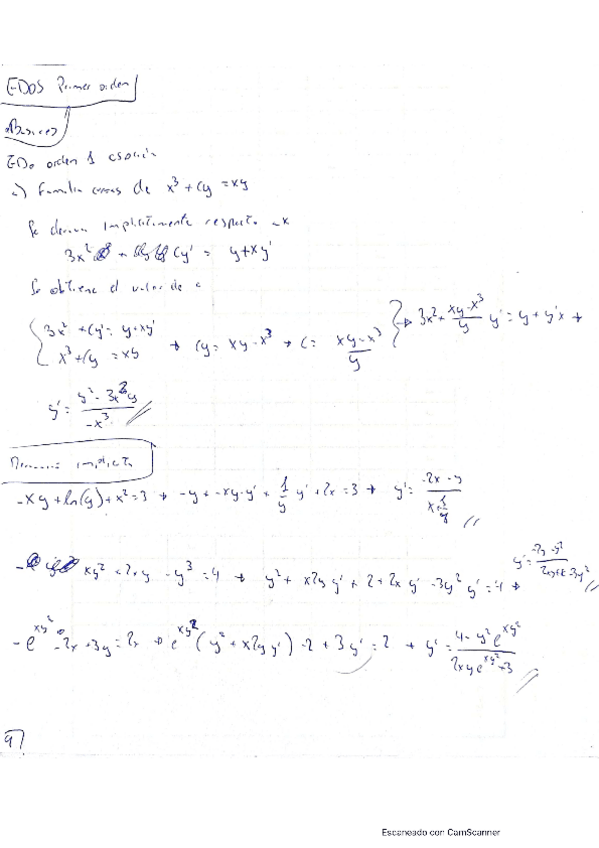 EDOS Primer orden
Básicas
EDO orden 1
Familia curvas de x³ + Cy = xy
Se deriva implícitamente respecto x
3x² + Cy' = y + xy'
Se obtiene el valor de c
3x² + Cy' = y + xy'
x³ + Cy = xy → Cy = xy - x³ → C = (xy - x³)/y → 3x² + (xy - x³)/y y' = y + y'x →
y' = (y² - 3x²y)/(-x³)
implícita
xy + ln(y) + x² = 3 → y + xy' + 1/y y' + 2x = 3 → y' = (-2x - y)/(x + 1/y)
- xy² + 2xy - y³ = 4 → y² + x2y y' + 2 + 2x y' - 3y² y' = 4 →
- e^(xy²) - 2x + 3y = 2x → e^(xy²) (y² + x2y y') - 2 + 3y' = 2 → y' = (4 - y² e^(xy²))/(2xy e^(xy²) + 3)
Escaneado con CamScanner